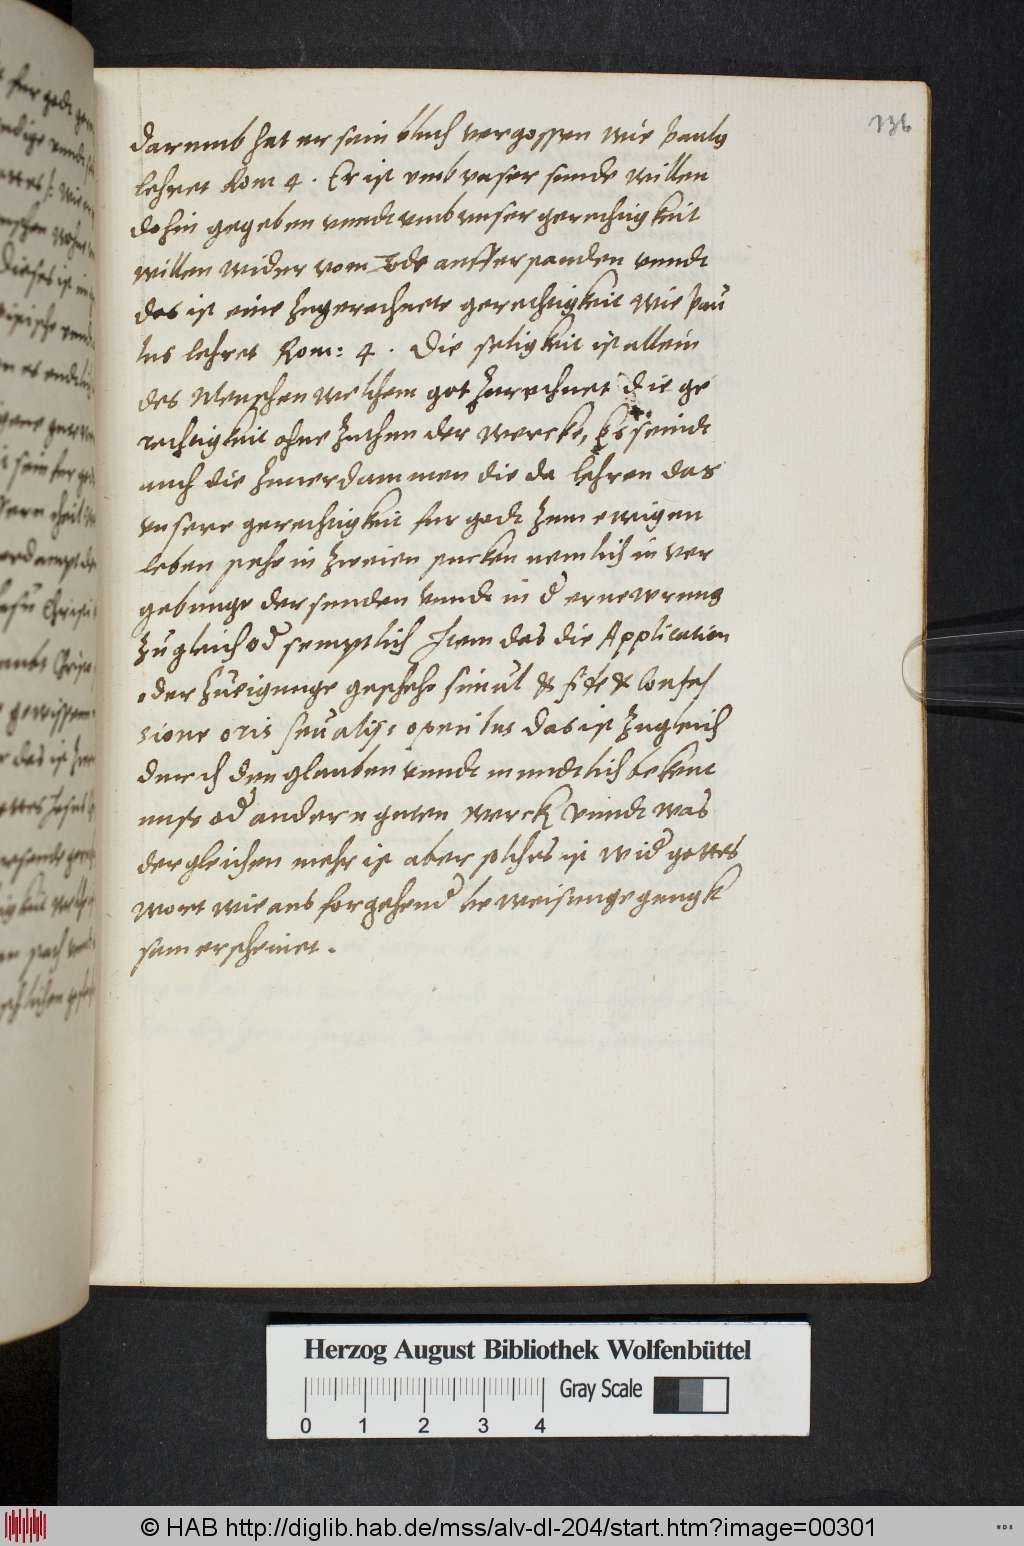 136
darumb hat er sein bluth vergossen wie Paulus
lehret Rom 4. Er ist umb unser sunde willen
dohin gegeben unndt umb unser gerechtigkeit
willen wider vom tode aufferstanden unndt
das ist eine zugerechnete gerechtigkeit wie Pau
lus lehret Rom: 4. Die seligkeit ist allein
des Menschen welchem got zurechnet die ge
rechtigkeit ohne zuthun der wercke, Es seindt
auch die zuuerdammen die da lehren das
unsere gerechtigkeit fur godt zum ewigen
leben stehe in zweien stucken nemlich in ver
gebunge der sunden unndt in d ernewrung
zugleich od semptlich Item das die Application
oder zueigunge geschehe simul & fide & Confes
sione oris das ist zugleich
durch den glauben unndt mundtlich bekent
nuss od andern guten werck unndt was
dergleichen mehr ist aber solches ist wid gottes
wort wie aus forgehend beweisunge gnugk
sam erscheinet.
Herzog August Bibliothek Wolfenbüttel
Gray Scale
0 1 2 3 4
© HAB http://diglib.hab.de/mss/alv-dl-204/start.htm?image=00301